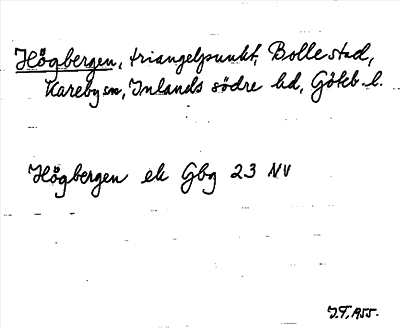 Högbergen, triangelpunkt, Bollestad,
Kareby sn, Inlands södre hd, Göteb. l.
Högbergen ek Gbg 23 NV
J.T. 1955.